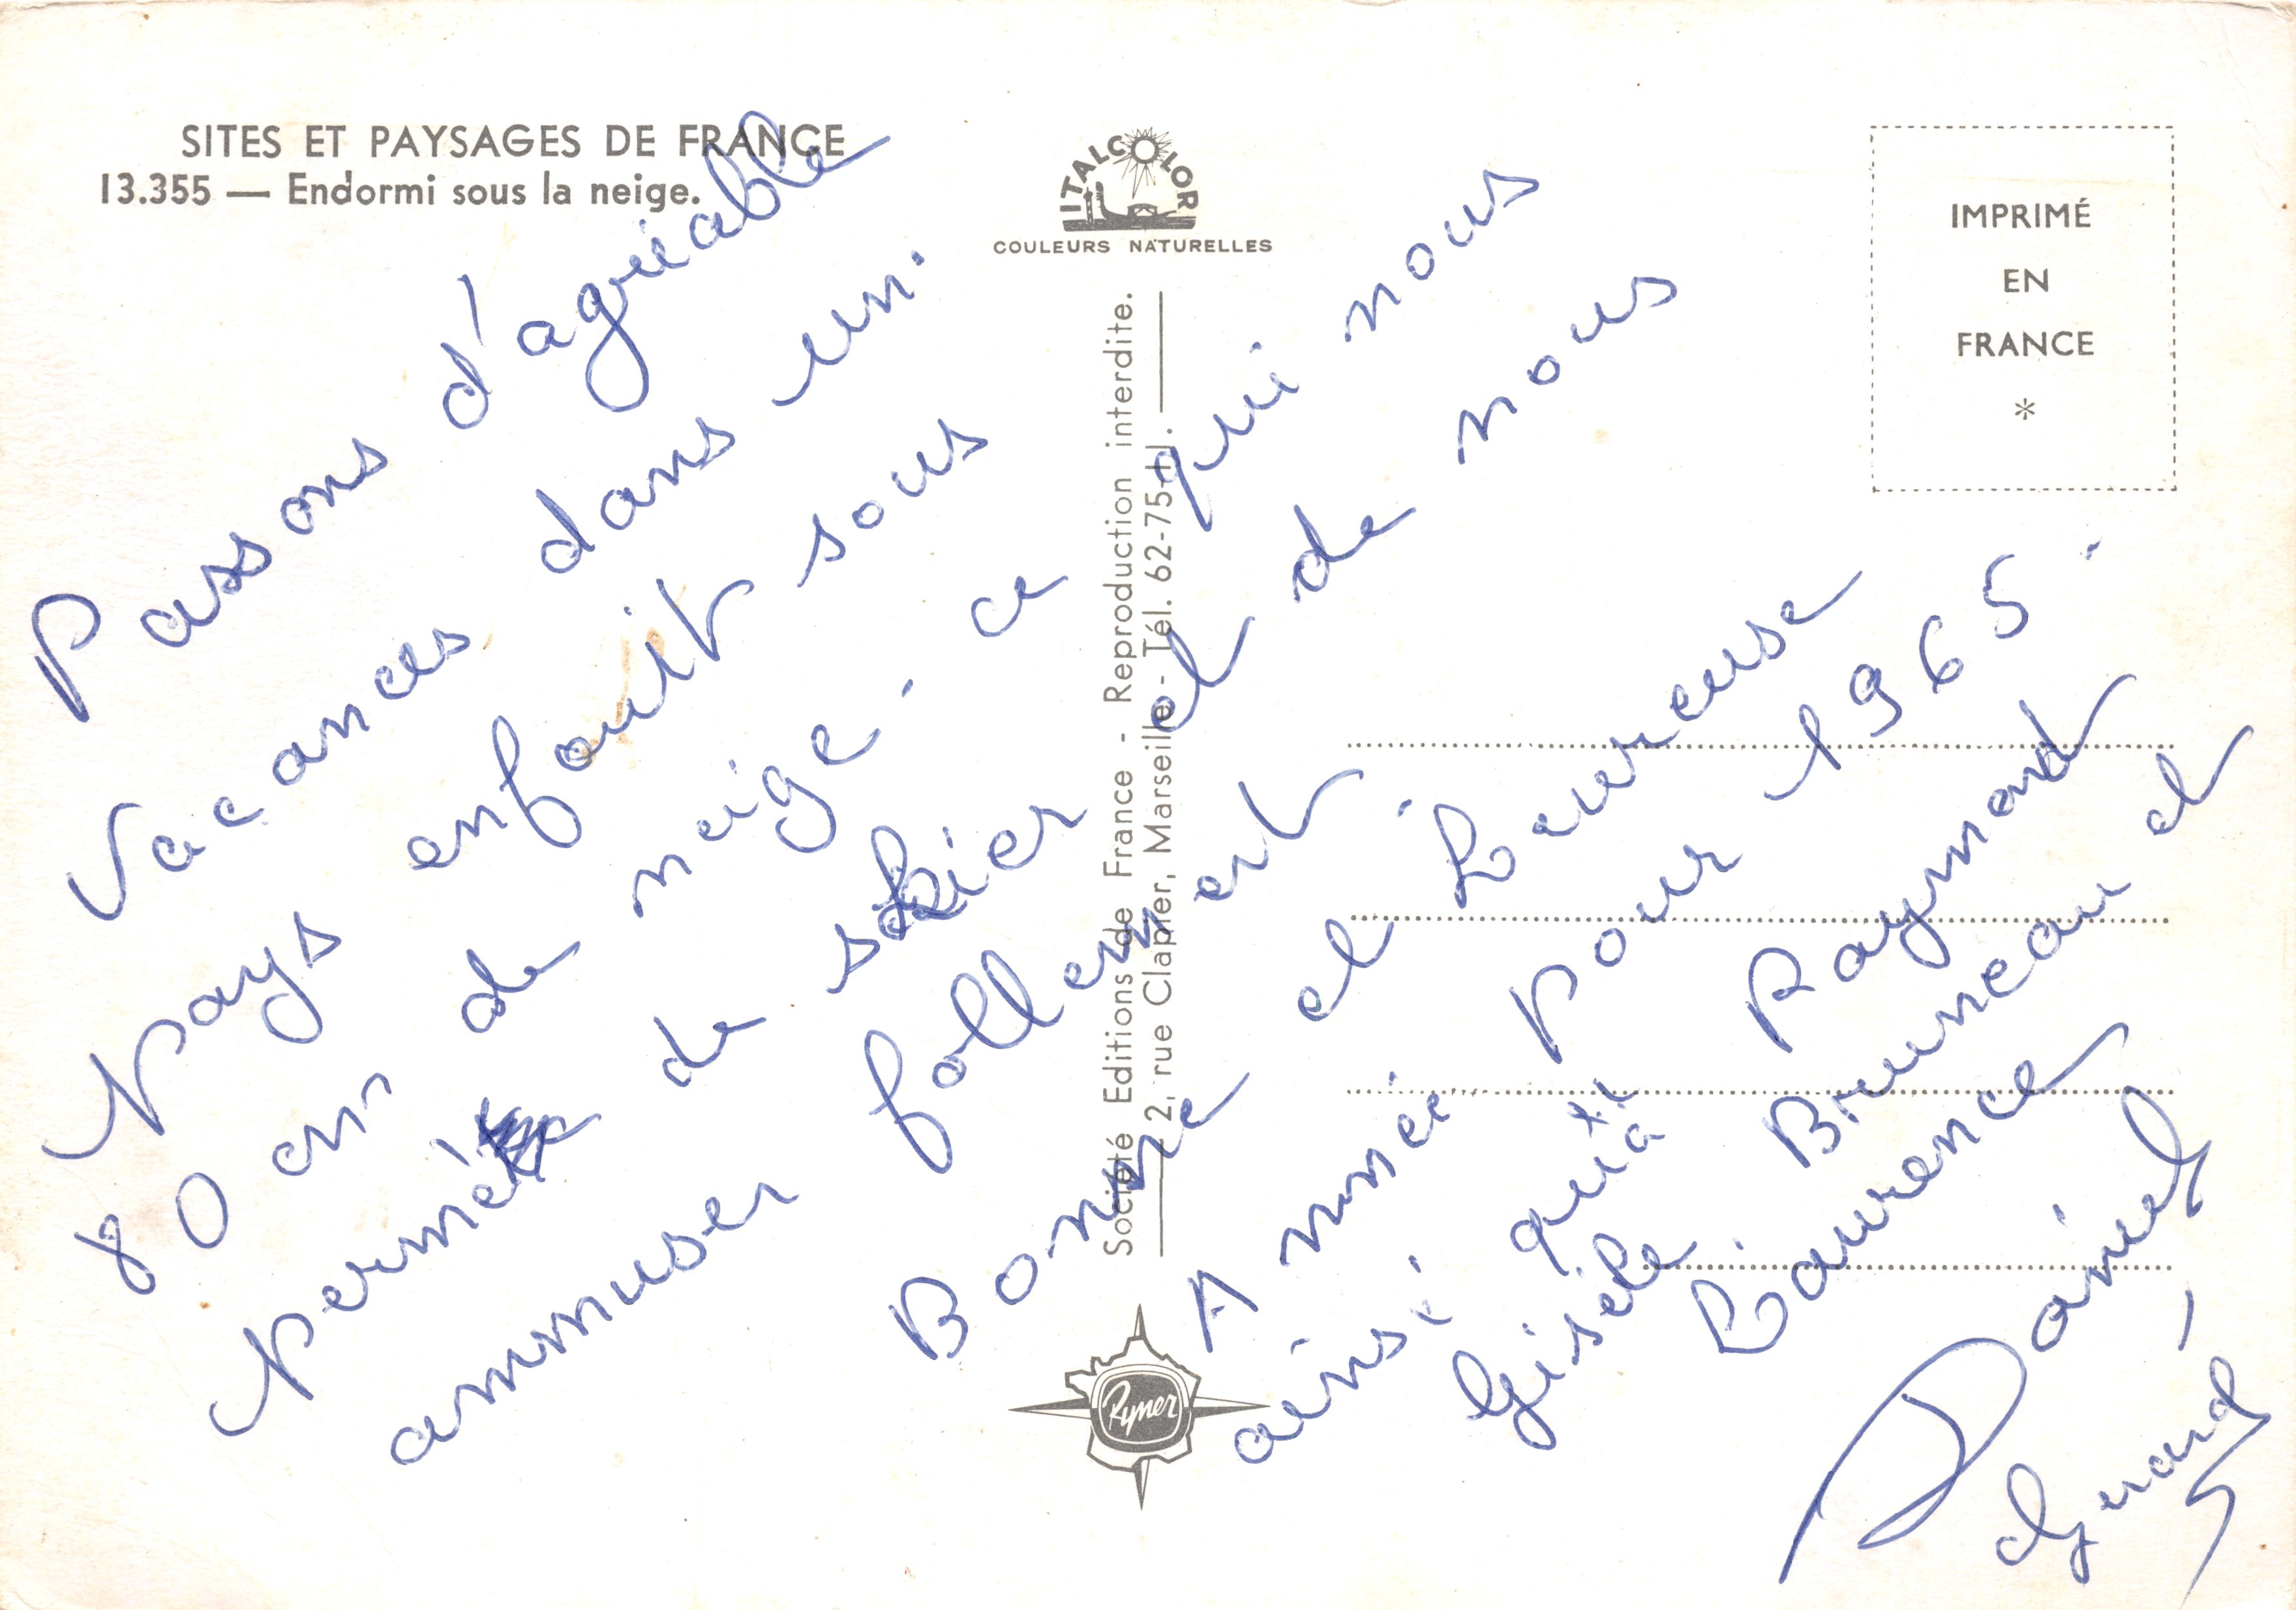 SITES ET PAYSAGES DE FRANCE
13.355 — Endormi sous la neige.
ITALCOLOR
COULEURS NATURELLES
IMPRIMÉ
EN
FRANCE
*
Société Editions de France - Reproduction interdite.
2, rue Clapier, Marseille - Tél. 62-75-11.
Rymer
Passons d'agréable
vacances dans un
pays enfouit sous
80 cm de neige. ce qui nous
permé de skier et de nous
ammuser follement.
Bonne et heureuse
Année pour 1965.
ainsi qu'à Raymond
Gisèle. Bruneau et
Laurence
Daniel
Gérard